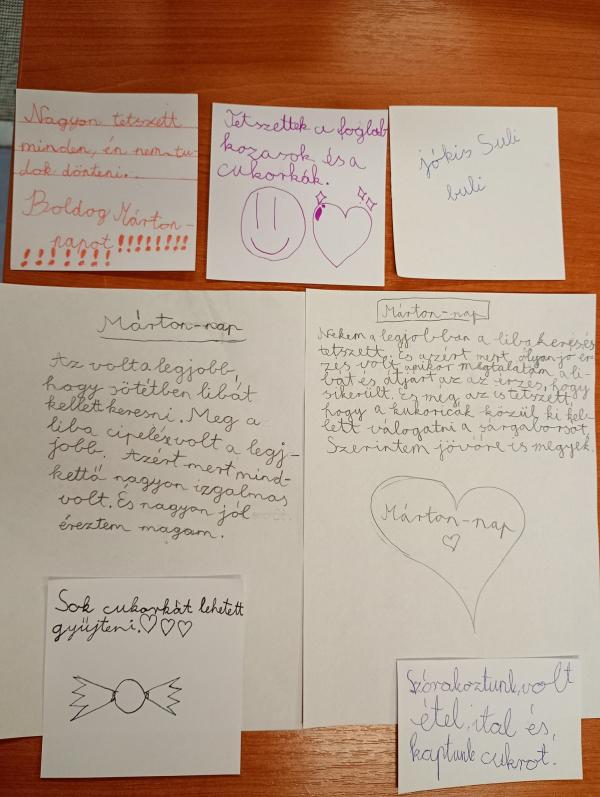 Nagyon tetszett
minden, én nem tu-
dok dönteni..
Boldog Márton-
napot !!!!!!!!
!!!!!!!
Tetszettek a foglal
kozások és a
cukorkák.
jókis Suli
buli
Márton-nap
Az volt a legjobb,
hogy sötétben libát
kellett keresni. Meg a
liba cipelés volt a legj-
jobb. Azért mert mind-
kettő nagyon izgalmas
volt. És nagyon jól
éreztem magam.
Márton-nap
Nekem a legjobban a libakeresés
tetszett. És azért mert, olyan jó ér-
zés volt, amikor megtaláltam a li-
bát és átjárt az az érzés, hogy
sikerült. És még az is tetszett,
hogy a kukoricák közül ki kel-
lett válogatni a sárgaborsót.
Szerintem jövőre is megyek.
Márton-nap
Sok cukorkát lehetett
gyűjteni.
Szórakoztunk, volt
étel, ital és,
kaptunk cukrot.